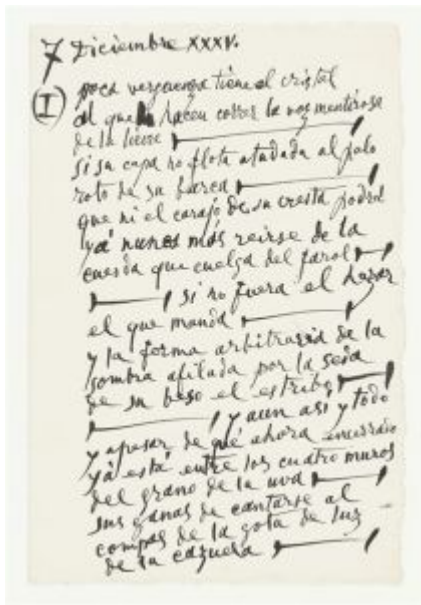 7 Diciembre XXXV.
(I) poca verguenza tiene el cristal
al que hacen correr la voz mentirosa
de la liebre
si su capa no flota atadada al palo
roto de su barca
que ni el corajo de su cresta podrá
yá nunca más reirse de la
cuerda que cuelga del farol
si no fuera el hazar
el que manda
y la forma arbitraria de la
sombra afilada por la seda
de su beso el estribo
y aun asi y todo
y apesar de qué ahora encerrado
yá está entre los cuatro muros
del grano de la uva
sus ganas de cantarse al
compas de la gota de luz
de la cazuela